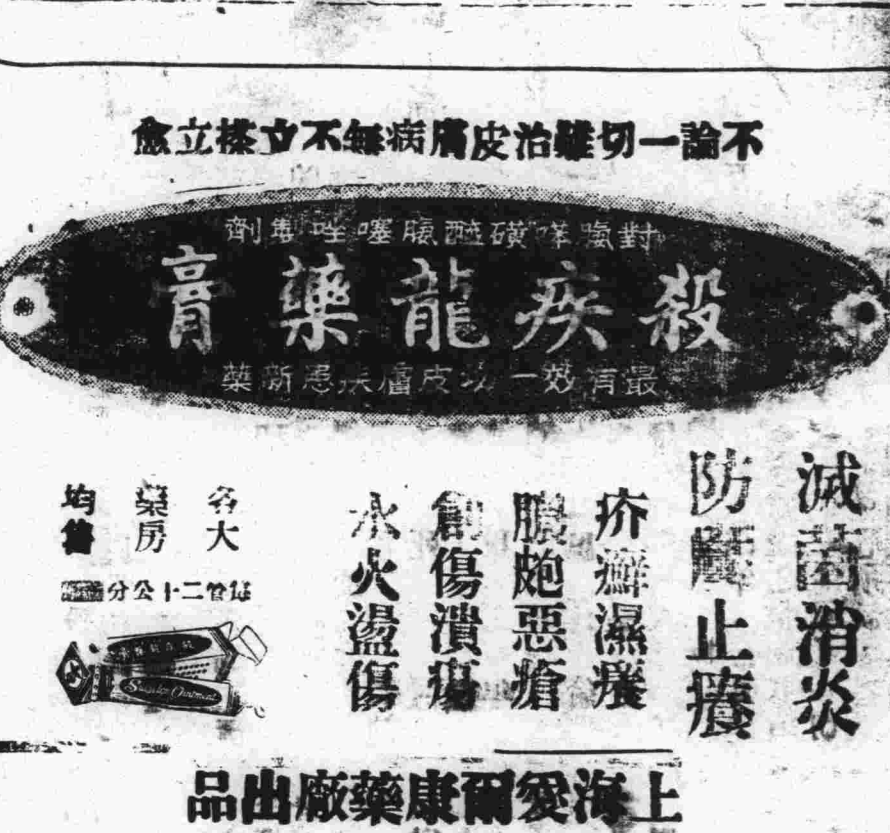 不論一切難治皮膚病無不立搽立愈
對氨苯磺醯胺噻唑製劑
殺疾龍藥膏
最有效一切皮膚疾患新藥
滅菌消炎
防腐止癢
疥癬濕癢
膿皰惡瘡
創傷潰瘍
水火盪傷
各大
藥房
均售
每管二十公分
Ointment
上海愛爾康藥廠出品